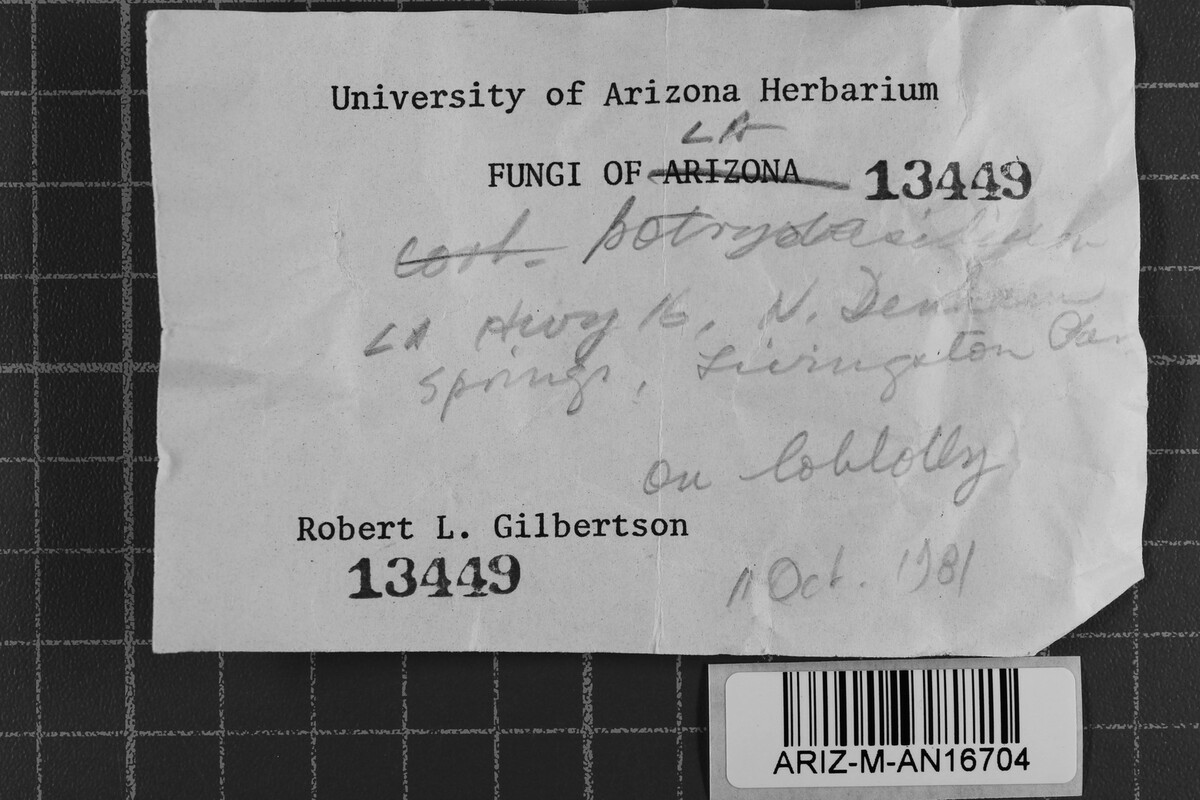 University of Arizona Herbarium
LA
FUNGI OF ARIZONA 13449
Cort. botrybasidium
LA Hwy 16, N. Denham
Springs, Livingston Par
On loblolly
Robert L. Gilbertson
13449
11 Oct. 1981
ARIZ-M-AN16704